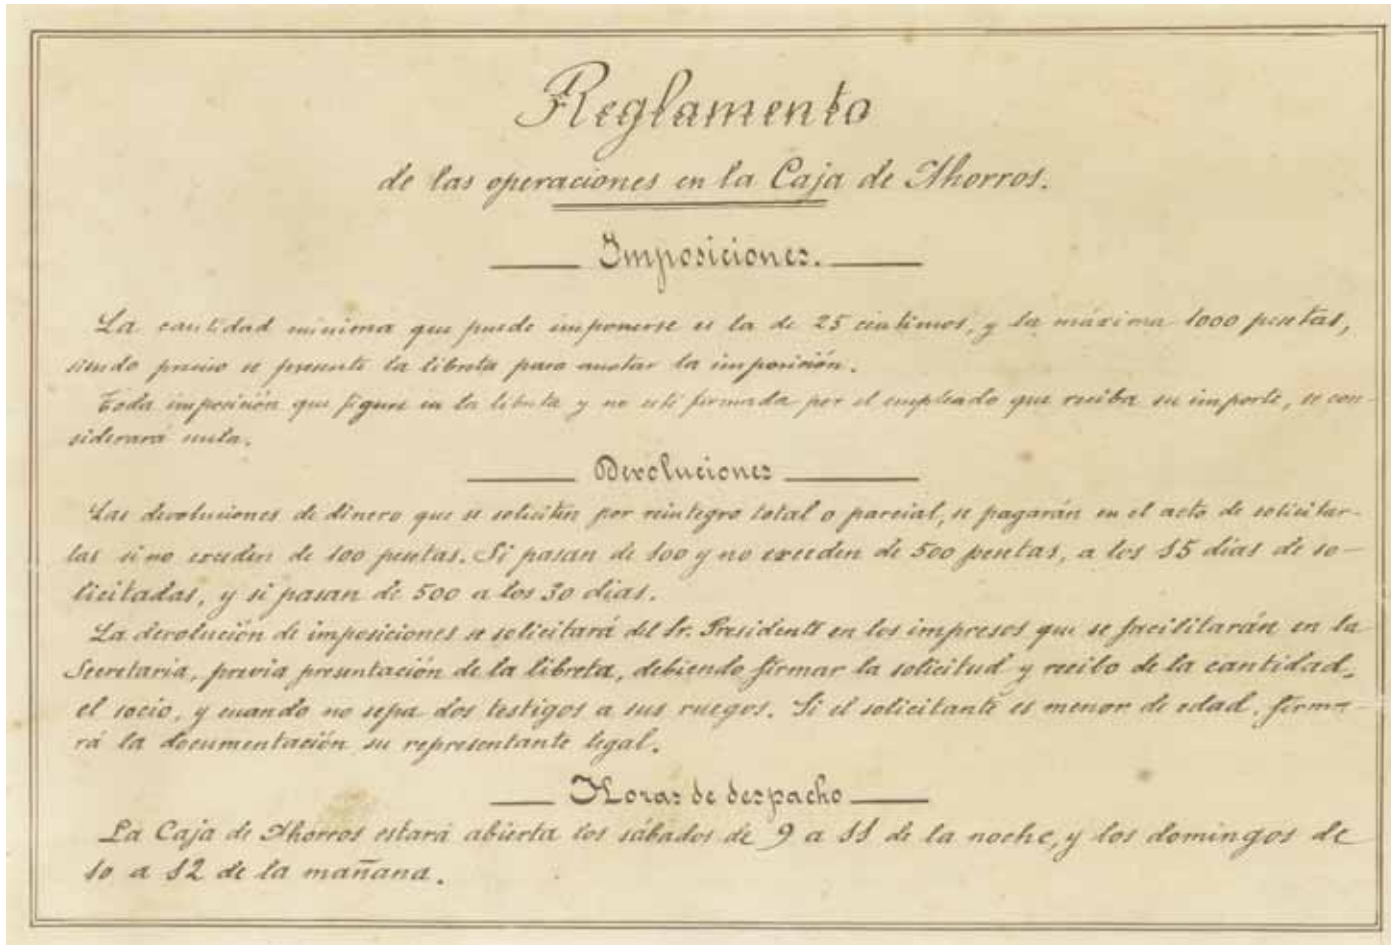 Reglamento
de las operaciones en la Caja de Ahorros.
Imposiciones.
La cantidad minima que puede imponerse es la de 25 centimos, y la máxima 1000 pesetas,
siendo preciso se presente la libreta para anotar la imposición.
Toda imposición que figure en la libreta y no esté firmada por el empleado que reciba su importe, se con-
siderará nula.
Devoluciones
Las devoluciones de dinero que se soliciten por reintegro total o parcial, se pagarán en el acto de solicitar-
las si no exceden de 100 pesetas. Si pasan de 100 y no exceden de 500 pesetas, a los 15 dias de so-
licitadas, y si pasan de 500 a los 30 dias.
La devolución de imposiciones se solicitará del Sr. Presidente en los impresos que se facilitarán en la
Secretaria, previa presentación de la libreta, debiendo firmar la solicitud y recibo de la cantidad,
el socio, y cuando no sepa dos testigos a sus ruegos. Si el solicitante es menor de edad, firma-
rá la documentación su representante legal.
Horas de despacho
La Caja de Ahorros estará abierta los sábados de 9 a 11 de la noche, y los domingos de
10 a 12 de la mañana.